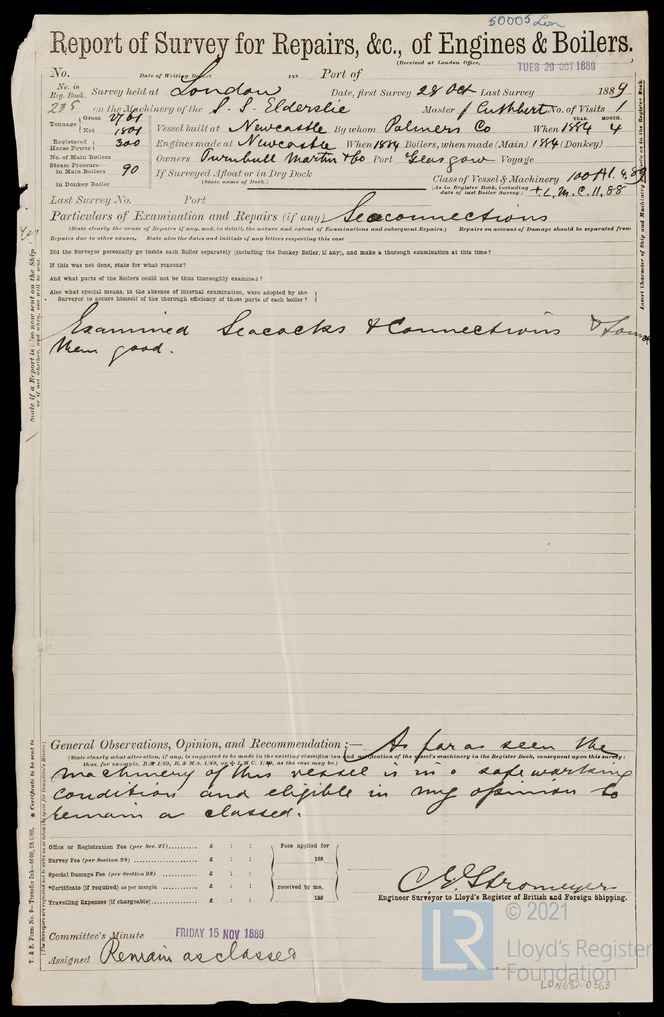 50005 Lon
Report of Survey for Repairs, &c., of Engines & Boilers.
(Received at London Office,
TUES 29 OCT 1889
No. Date of Writing Report 18 Port of
No. in Reg. Book. Survey held at London Date, first Survey 28 Oct Last Survey 1889
235 on the Machinery of the S. S. Elderslie Master J Cuthbert No. of Visits 1
Tonnage Gross 2761
Net 1801
Vessel built at Newcastle By whom Palmers Co When YEAR. 1884 MONTH. 4
Registered Horse Power 300 Engines made at Newcastle When 1884 Boilers, when made (Main) 1884 (Donkey)
No. of Main Boilers Owners Turnbull Martin & Co Port Glasgow Voyage
Steam Pressure in Main Boilers 90 If Surveyed Afloat or in Dry Dock
(State name of Dock.)
Class of Vessel & Machinery 100 A1. 4,89
(As in Register Book, including date of last Boiler Survey.) + L. M. C. 11, 88
in Donkey Boiler
Last Survey No. Port
Particulars of Examination and Repairs (if any) Seaconnections
(State clearly the cause of Repairs if any, and, in detail, the nature and extent of Examinations and subsequent Repairs.) Repairs on account of Damage should be separated from
Repairs due to other causes. State also the dates and initials of any letters respecting this case
Did the Surveyor personally go inside each Boiler separately (including the Donkey Boiler, if any), and make a thorough examination at this time?
If this was not done, state for what reasons?
And what parts of the Boilers could not be thus thoroughly examined?
Also what special means, in the absence of internal examination, were adopted by the
Surveyor to assure himself of the thorough efficiency of those parts of each boiler?
Examined Seacocks & Connections & found
them good.
State if a Report is also now sent on the Ship
or if not, whether, and when, one will be sent
Yes
Insert Character of Ship and Machinery precisely as in the Register Book.
General Observations, Opinion, and Recommendation:— As far as seen the
(State clearly what alteration, if any, is suggested to be made in the existing classification and notification of the vessel's machinery in the Register Book, consequent upon this survey:
thus, for example, B.S 1/89, B. & M.S. 1/89, or + L.M.C. 1/89, as the case may be.)
machinery of this vessel is in a safe working
condition and eligible in my opinion to
remain as classed.
Office or Registration Fee (per Sec. 27) £ : : Fees applied for
Survey Fee (per Section 28) £ : : 188
Special Damage Fee (per Section 28) £ : :
*Certificate (if required) as per margin £ : : received by me,
Travelling Expenses (if chargeable) £ : : 188
C. E. Stromeyer
Engineer Surveyor to Lloyd's Register of British and Foreign Shipping.
Committee's Minute FRIDAY 15 NOV 1889
Assigned Remain as classed
T. & S. Form No. 9—Transfer Ink—6000, 28/1/89.
* Certificate to be sent to
(The Surveyors are requested not to write on or below the space for Committee's Minute)
LR
© 2021
Lloyd's Register
Foundation
LON687-0363